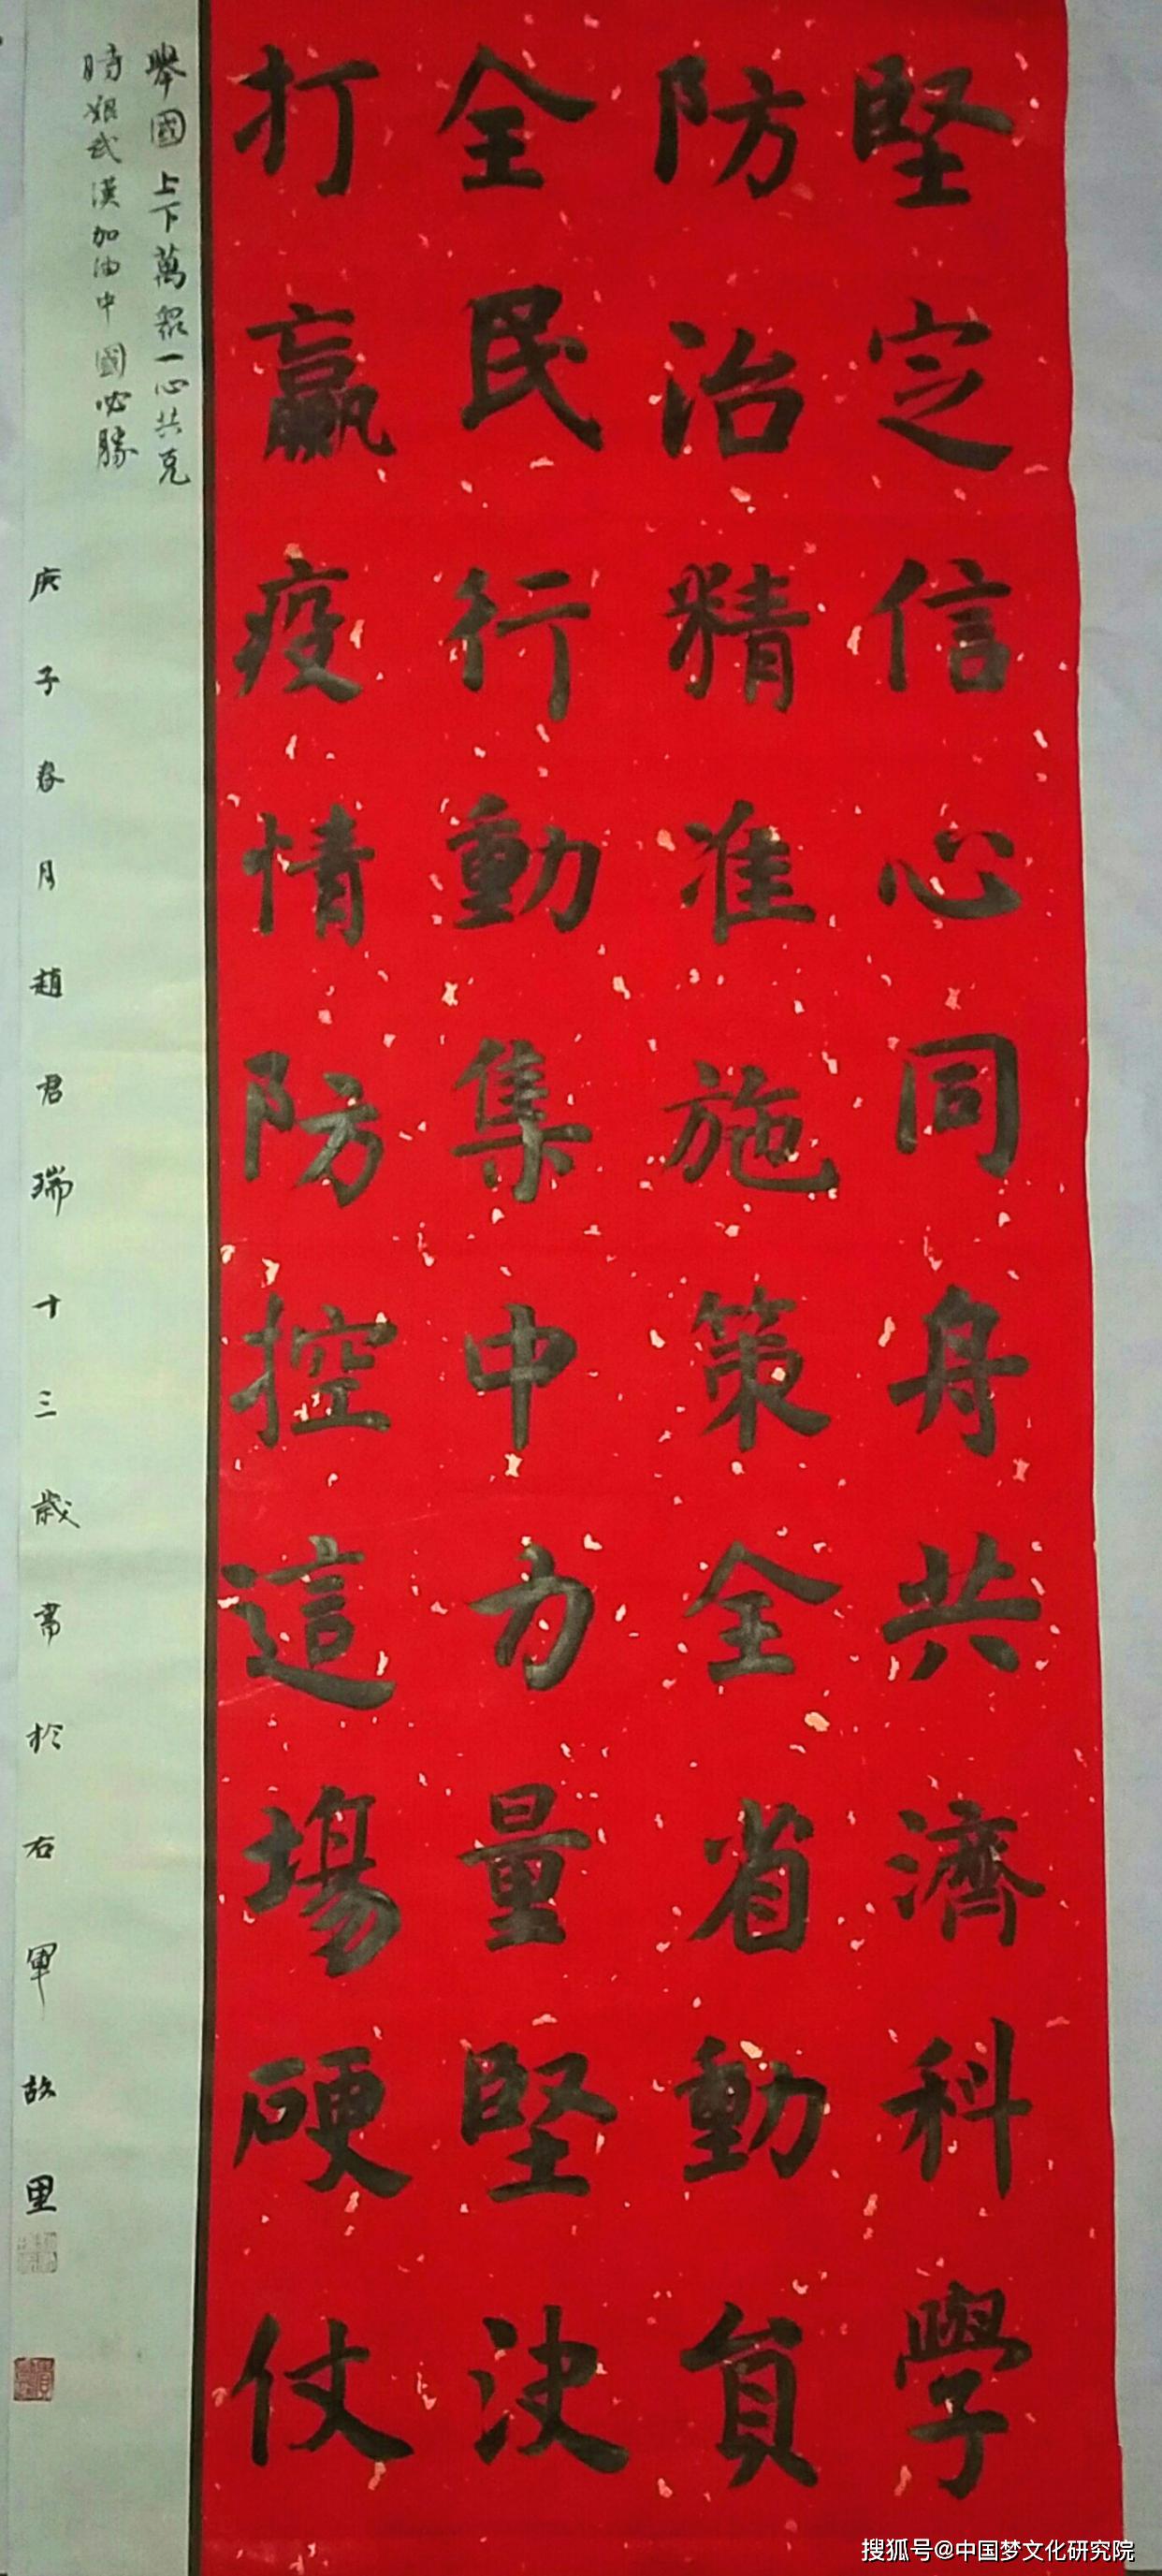 堅定信心同舟共濟科學
防治精准施策全省動員
全民行動集中力量堅決
打贏疫情防控這場硬仗
舉國上下萬眾一心共克
時艱武漢加油中國必勝
庚子春月趙君瑞十三歲書於右軍故里
搜狐号@中国梦文化研究院